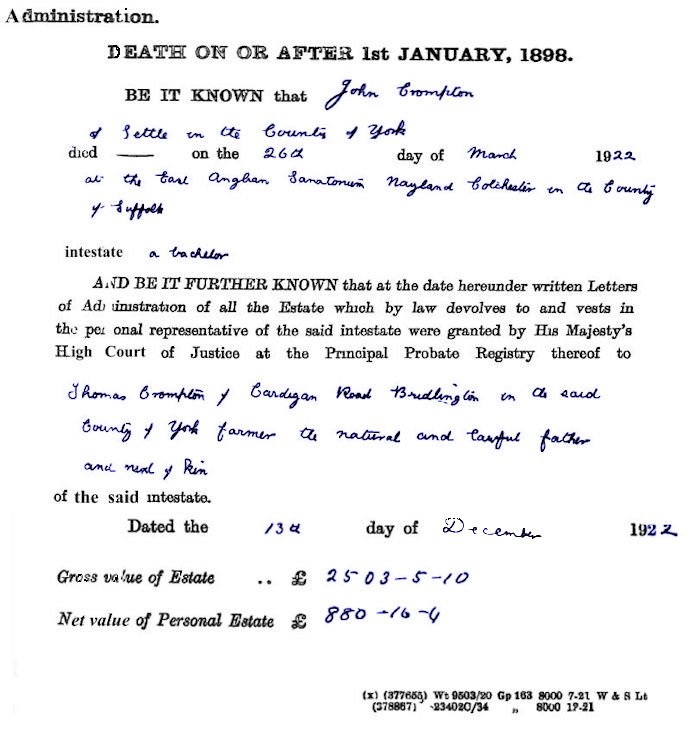 Administration.
DEATH ON OR AFTER 1st JANUARY, 1898.
BE IT KNOWN that John Crompton
of Settle in the County of York
died —— on the 26th day of March 1922
at the East Anglian Sanatorium Nayland Colchester in the County
of Suffolk
intestate a bachelor
AND BE IT FURTHER KNOWN that at the date hereunder written Letters
of Administration of all the Estate which by law devolves to and vests in
the personal representative of the said intestate were granted by His Majesty's
High Court of Justice at the Principal Probate Registry thereof to
Thomas Crompton of Cardigan Road Bridlington in the said
County of York farmer the natural and lawful father
and next of kin
of the said intestate.
Dated the 13th day of December 1922
Gross value of Estate .. £ 2503-5-10
Net value of Personal Estate £ 880-16-4
(x) (377655) Wt 9503/20 Gp 163 8000 7-21 W & S Lt
(378867) 23402C/34 „ 8000 12-21